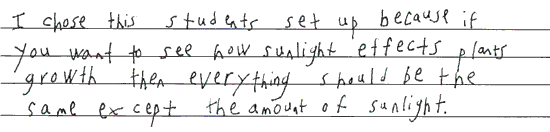 I chose this students set up because if
you want to see how sunlight effects plants
growth then everything should be the
same except the amount of sunlight.